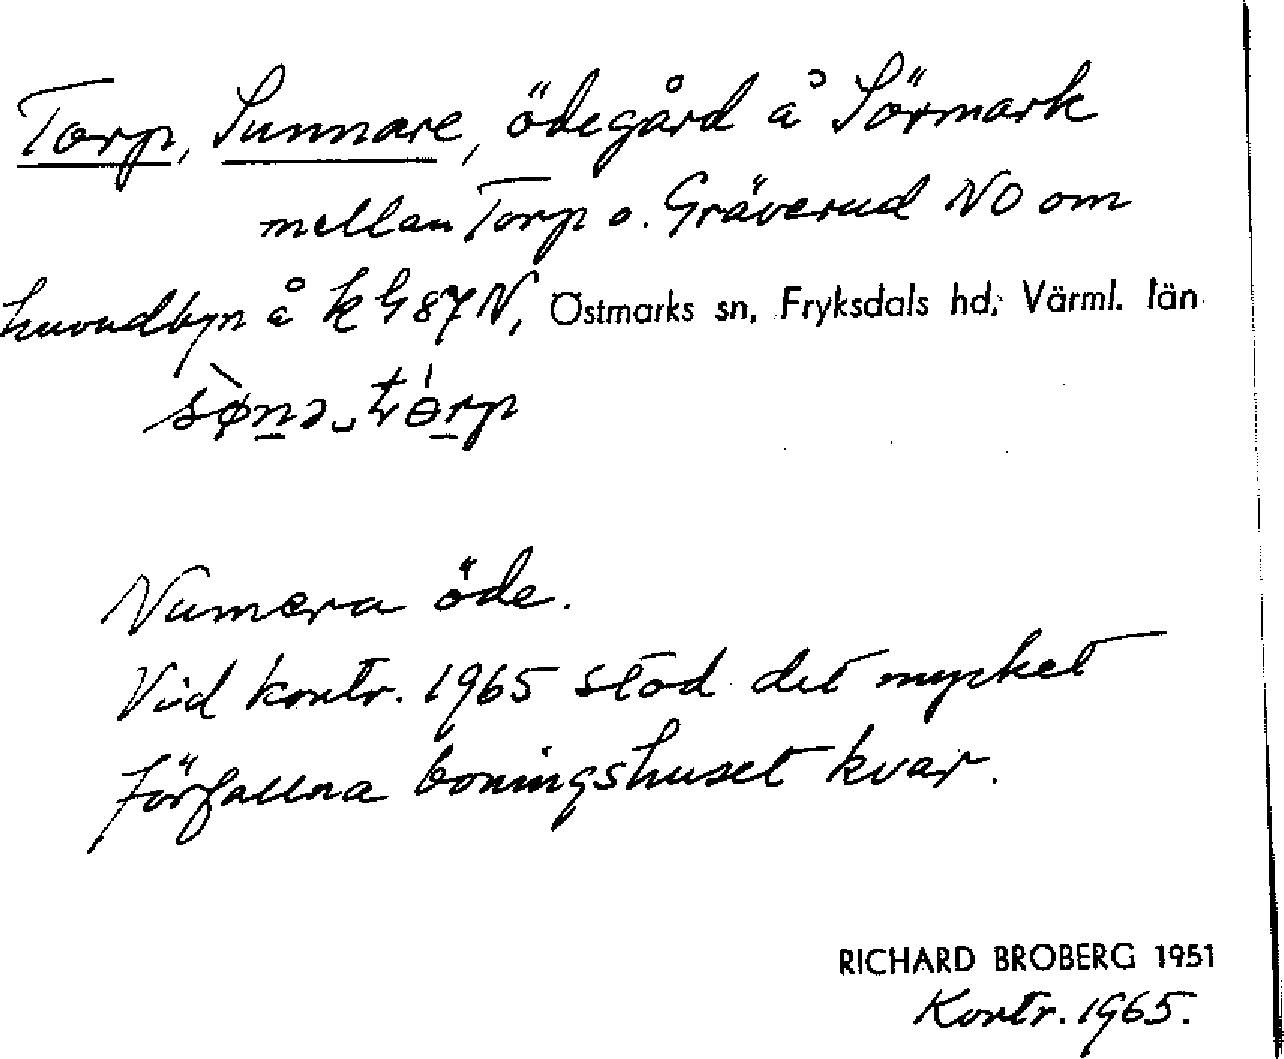 Torp, Sunnare, ödegård å Sörmark
mellan Torp o. Gräverud NO om
huvudbyn å k G 87 N, Östmarks sn, Fryksdals hd, Värml. län
Numera öde.
Vid kontr. 1965 stod det mycket
förfallna boningshuset kvar.
RICHARD BROBERG 1951
Kontr. 1965.